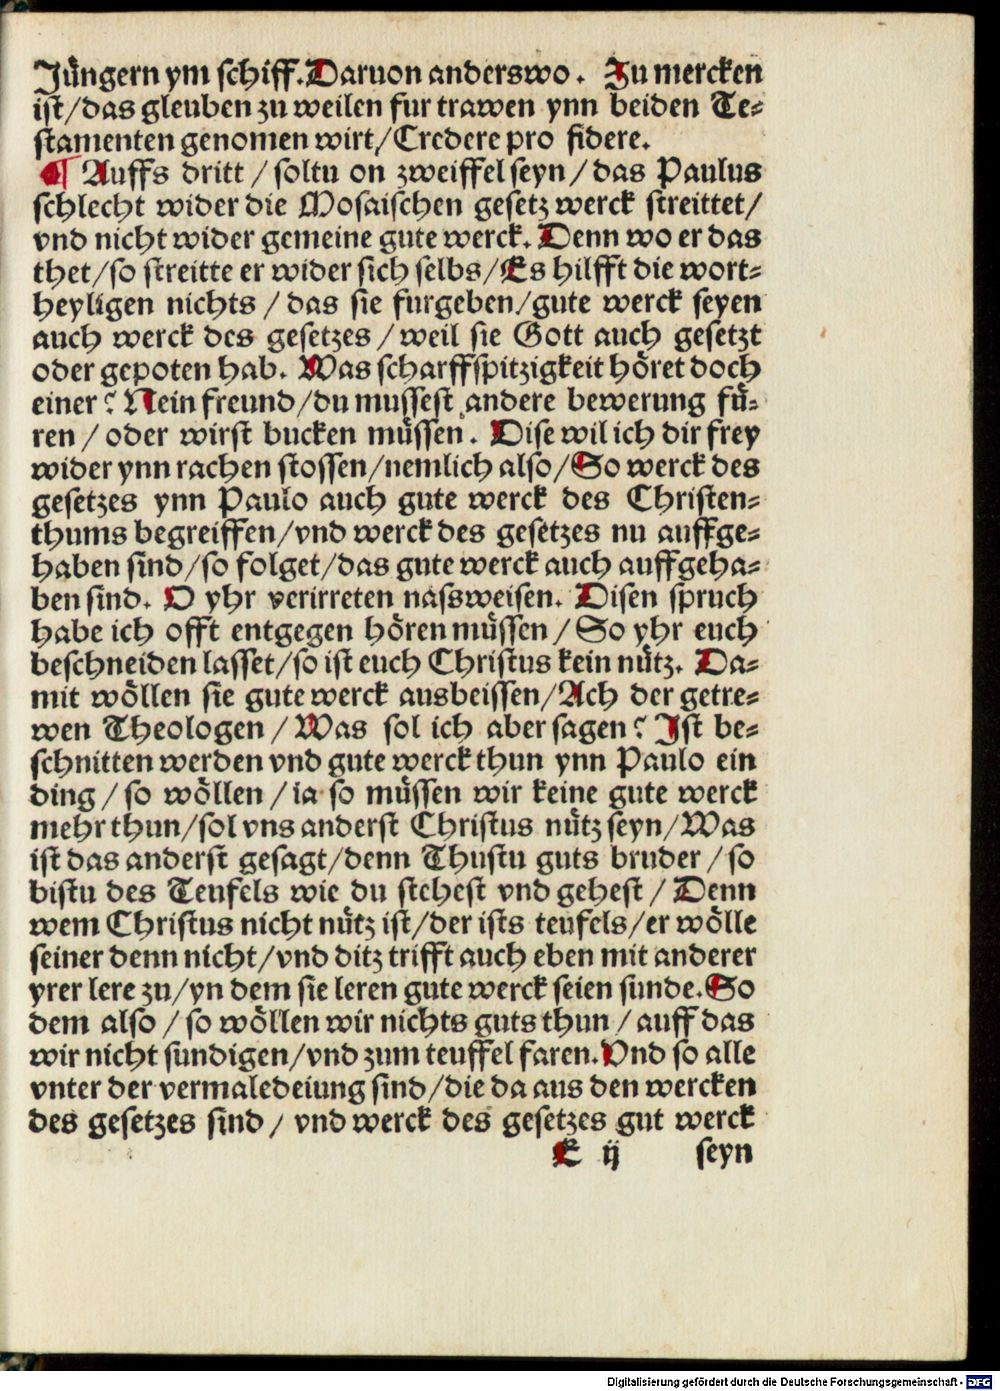 Jüngern ym schiff. Daruon anderswo. Zu mercken
ist/das gleuben zu weilen fur trawen ynn beiden Te-
stamenten genomen wirt/Credere pro fidere.
¶ Auffs dritt / soltu on zweiffel seyn / das Paulus
schlecht wider die Mosaischen gesetz werck streittet/
vnd nicht wider gemeine gute werck. Denn wo er das
thet/so streitte er wider sich selbs/Es hilfft die wort-
heyligen nichts / das sie furgeben/gute werck seyen
auch werck des gesetzes / weil sie Gott auch gesetzt
oder gepoten hab. Was scharffspitzigkeit höret doch
einer? Nein freund/du mussest andere bewerung fü-
ren / oder wirst bucken müssen. Dise wil ich dir frey
wider ynn rachen stossen/nemlich also/So werck des
gesetzes ynn Paulo auch gute werck des Christen-
thums begreiffen/vnd werck des gesetzes nu auffge-
haben sind/so folget/das gute werck auch auffgeha-
ben sind. O yhr verirreten nassweisen. Disen spruch
habe ich offt entgegen hören müssen / So yhr euch
beschneiden lasset/so ist euch Christus kein nütz. Da-
mit wöllen sie gute werck ausbeissen/Ach der getre-
wen Theologen / Was sol ich aber sagen? Ist be-
schnitten werden vnd gute werck thun ynn Paulo ein
ding / so wöllen / ia so müssen wir keine gute werck
mehr thun/sol vns anderst Christus nütz seyn/Was
ist das anderst gesagt/denn Thustu guts bruder / so
bistu des Teufels wie du stehest vnd gehest / Denn
wem Christus nicht nütz ist/der ists teufels/er wölle
seiner denn nicht/vnd ditz trifft auch eben mit anderer
yrer lere zu/yn dem sie leren gute werck seien sunde. So
dem also / so wöllen wir nichts guts thun / auff das
wir nicht sundigen/vnd zum teuffel faren. Vnd so alle
vnter der vermaledeiung sind/die da aus den wercken
des gesetzes sind / vnd werck des gesetzes gut werck
E ij seyn
Digitalisierung gefördert durch die Deutsche Forschungsgemeinschaft - DFG